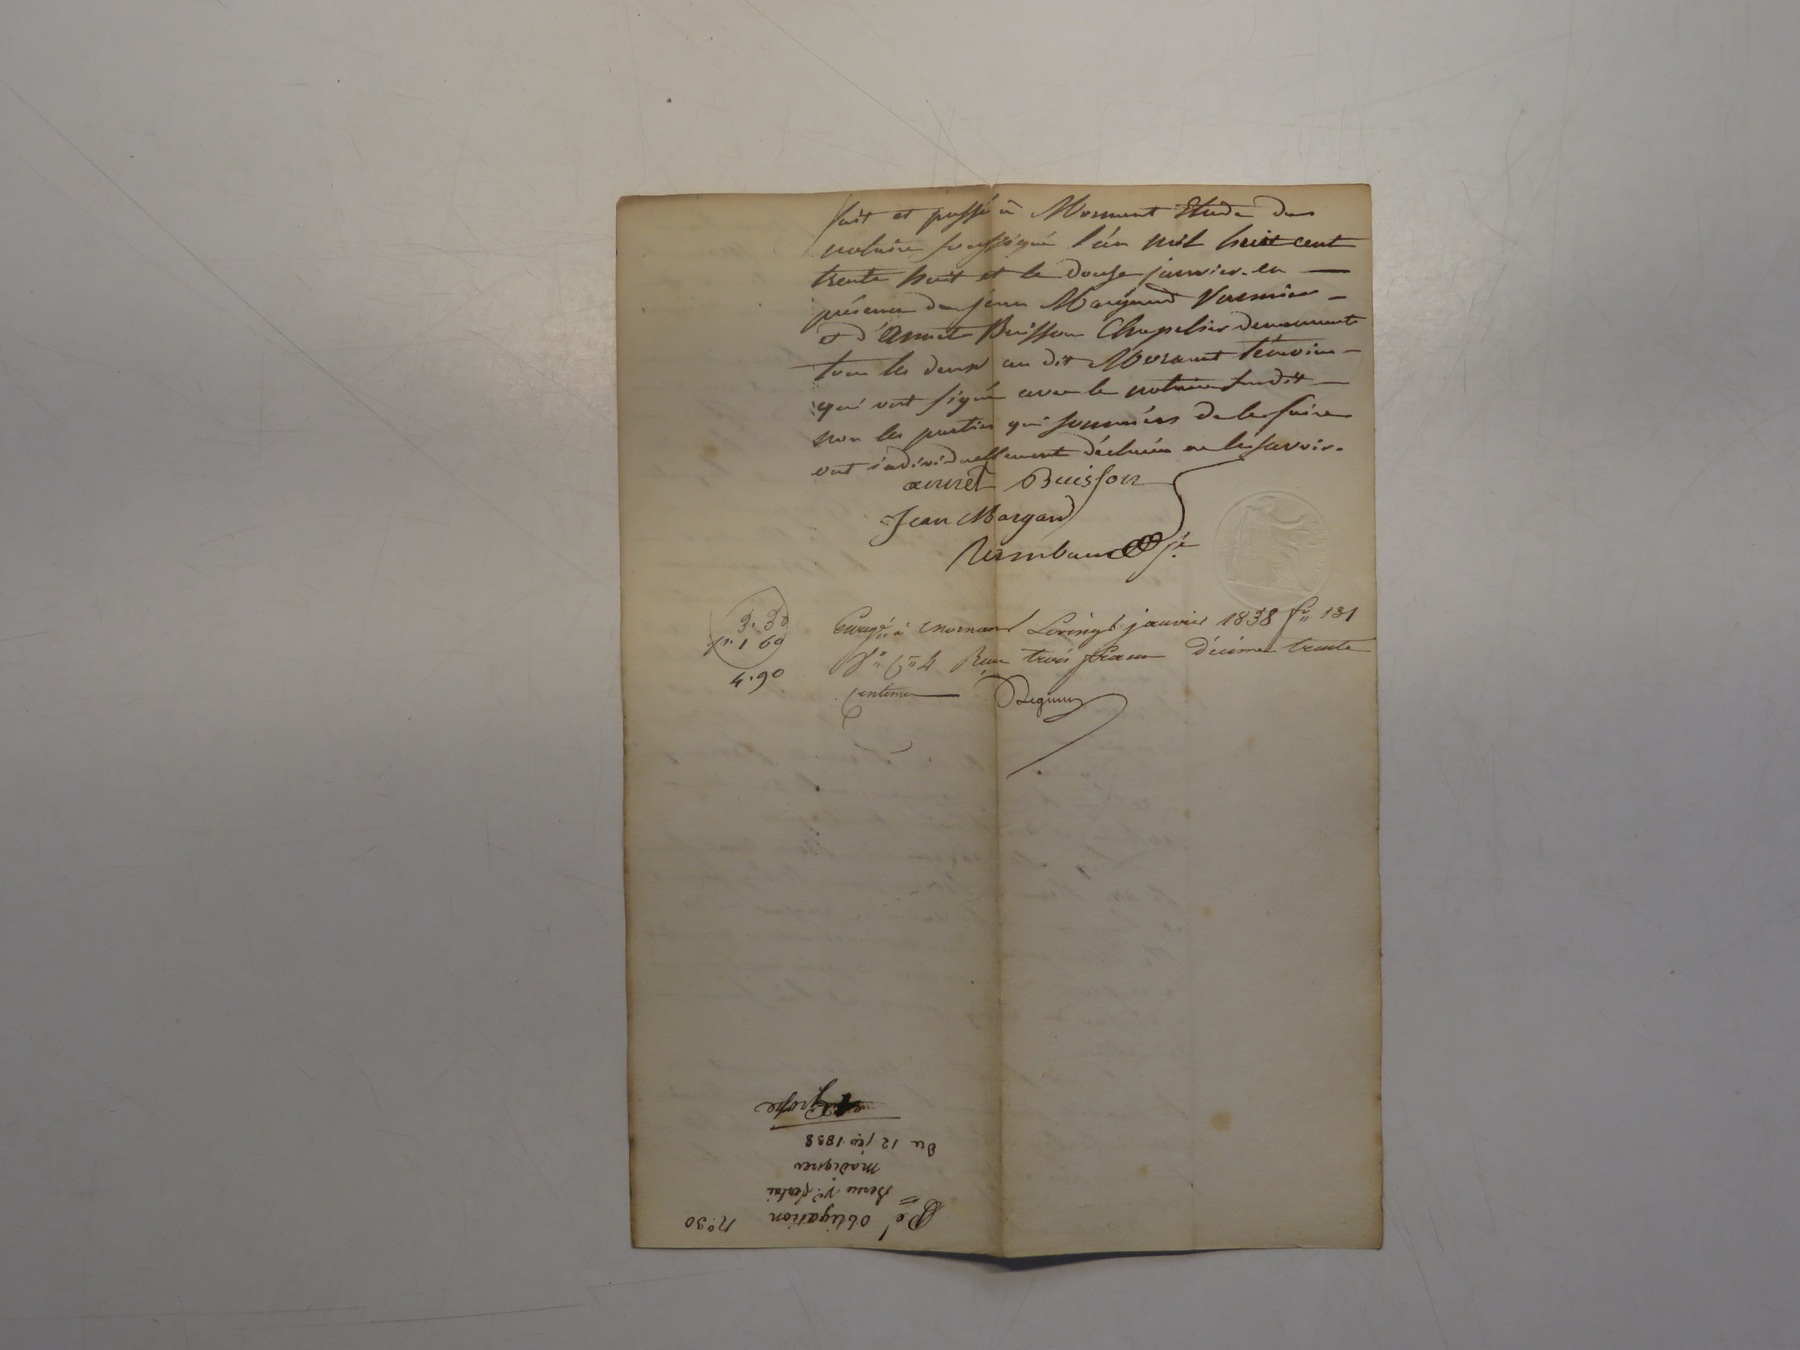 fait et passé à Mornant Etude du
notaire soussigné l'an mil huit cent
trente huit et le douze janvier en
présence de jean Margand
et d'annet Buisson Chapelier demeurants
tous les deux au dit Mornant témoins
qui ont signé avec le notaire susdit
non les parties qui sommées de le faire
ont individuellement déclaré ne le savoir.
annet Buisson
Jean Margand
3. 30
1 60
4. 90
à mornant Le vingt janvier 1838 fo 181
Vo Ce 4 Reçu trois francs décime trente
centimes
No 30
obligation
Du 12 1838